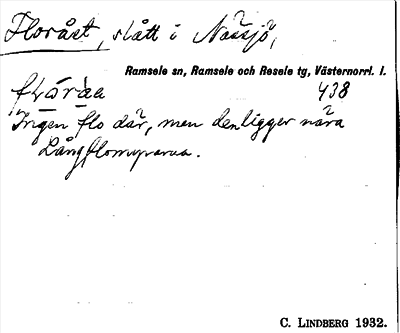 Floråst, slått i Nässjö,
Ramsele sn, Ramsele och Resele tg, Västernorrl. l.
438
Ingen flo där, men den ligger nära
Långflomyrarna.
C. LINDBERG 1932.